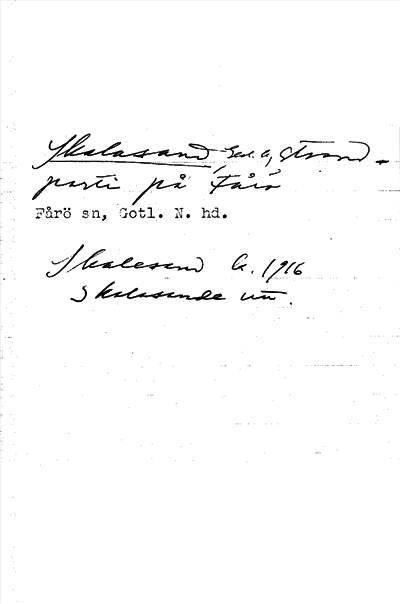 Skalasand, strand-
parti på Fårö
Fårö sn, Gotl. N. hd.
Skalesand G. 1916
Skalasande